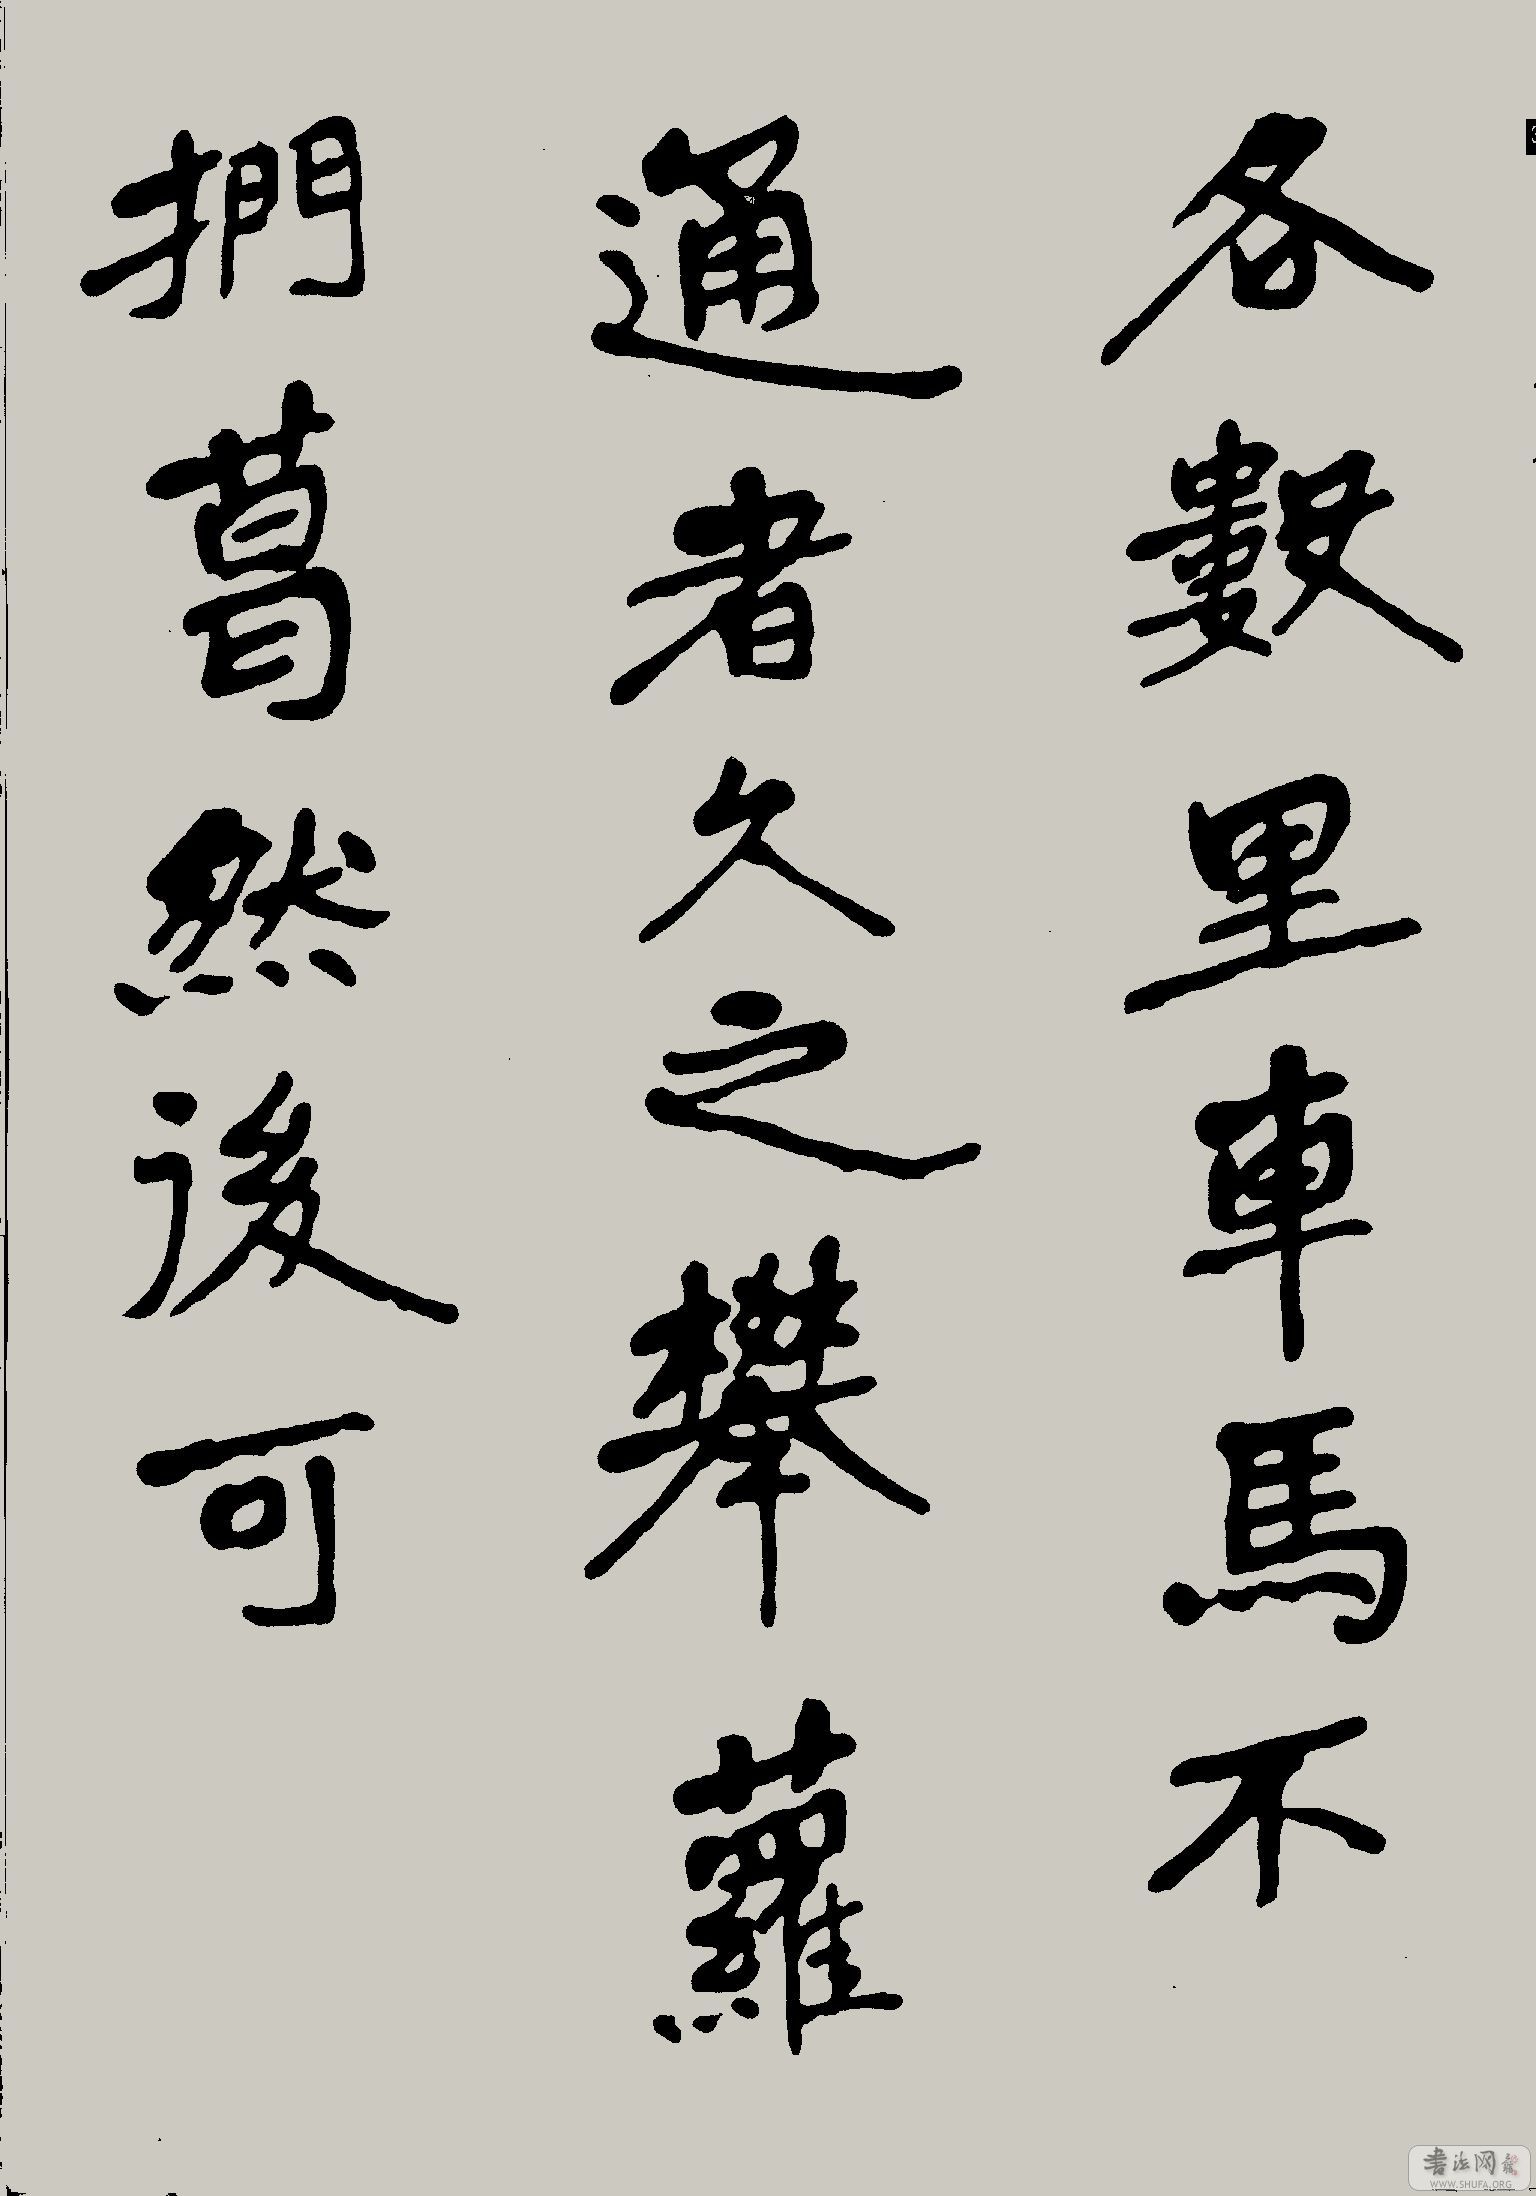 各數里車馬不
通者久之攀蘿
捫葛然後可
书法网
WWW.SHUFA.ORG